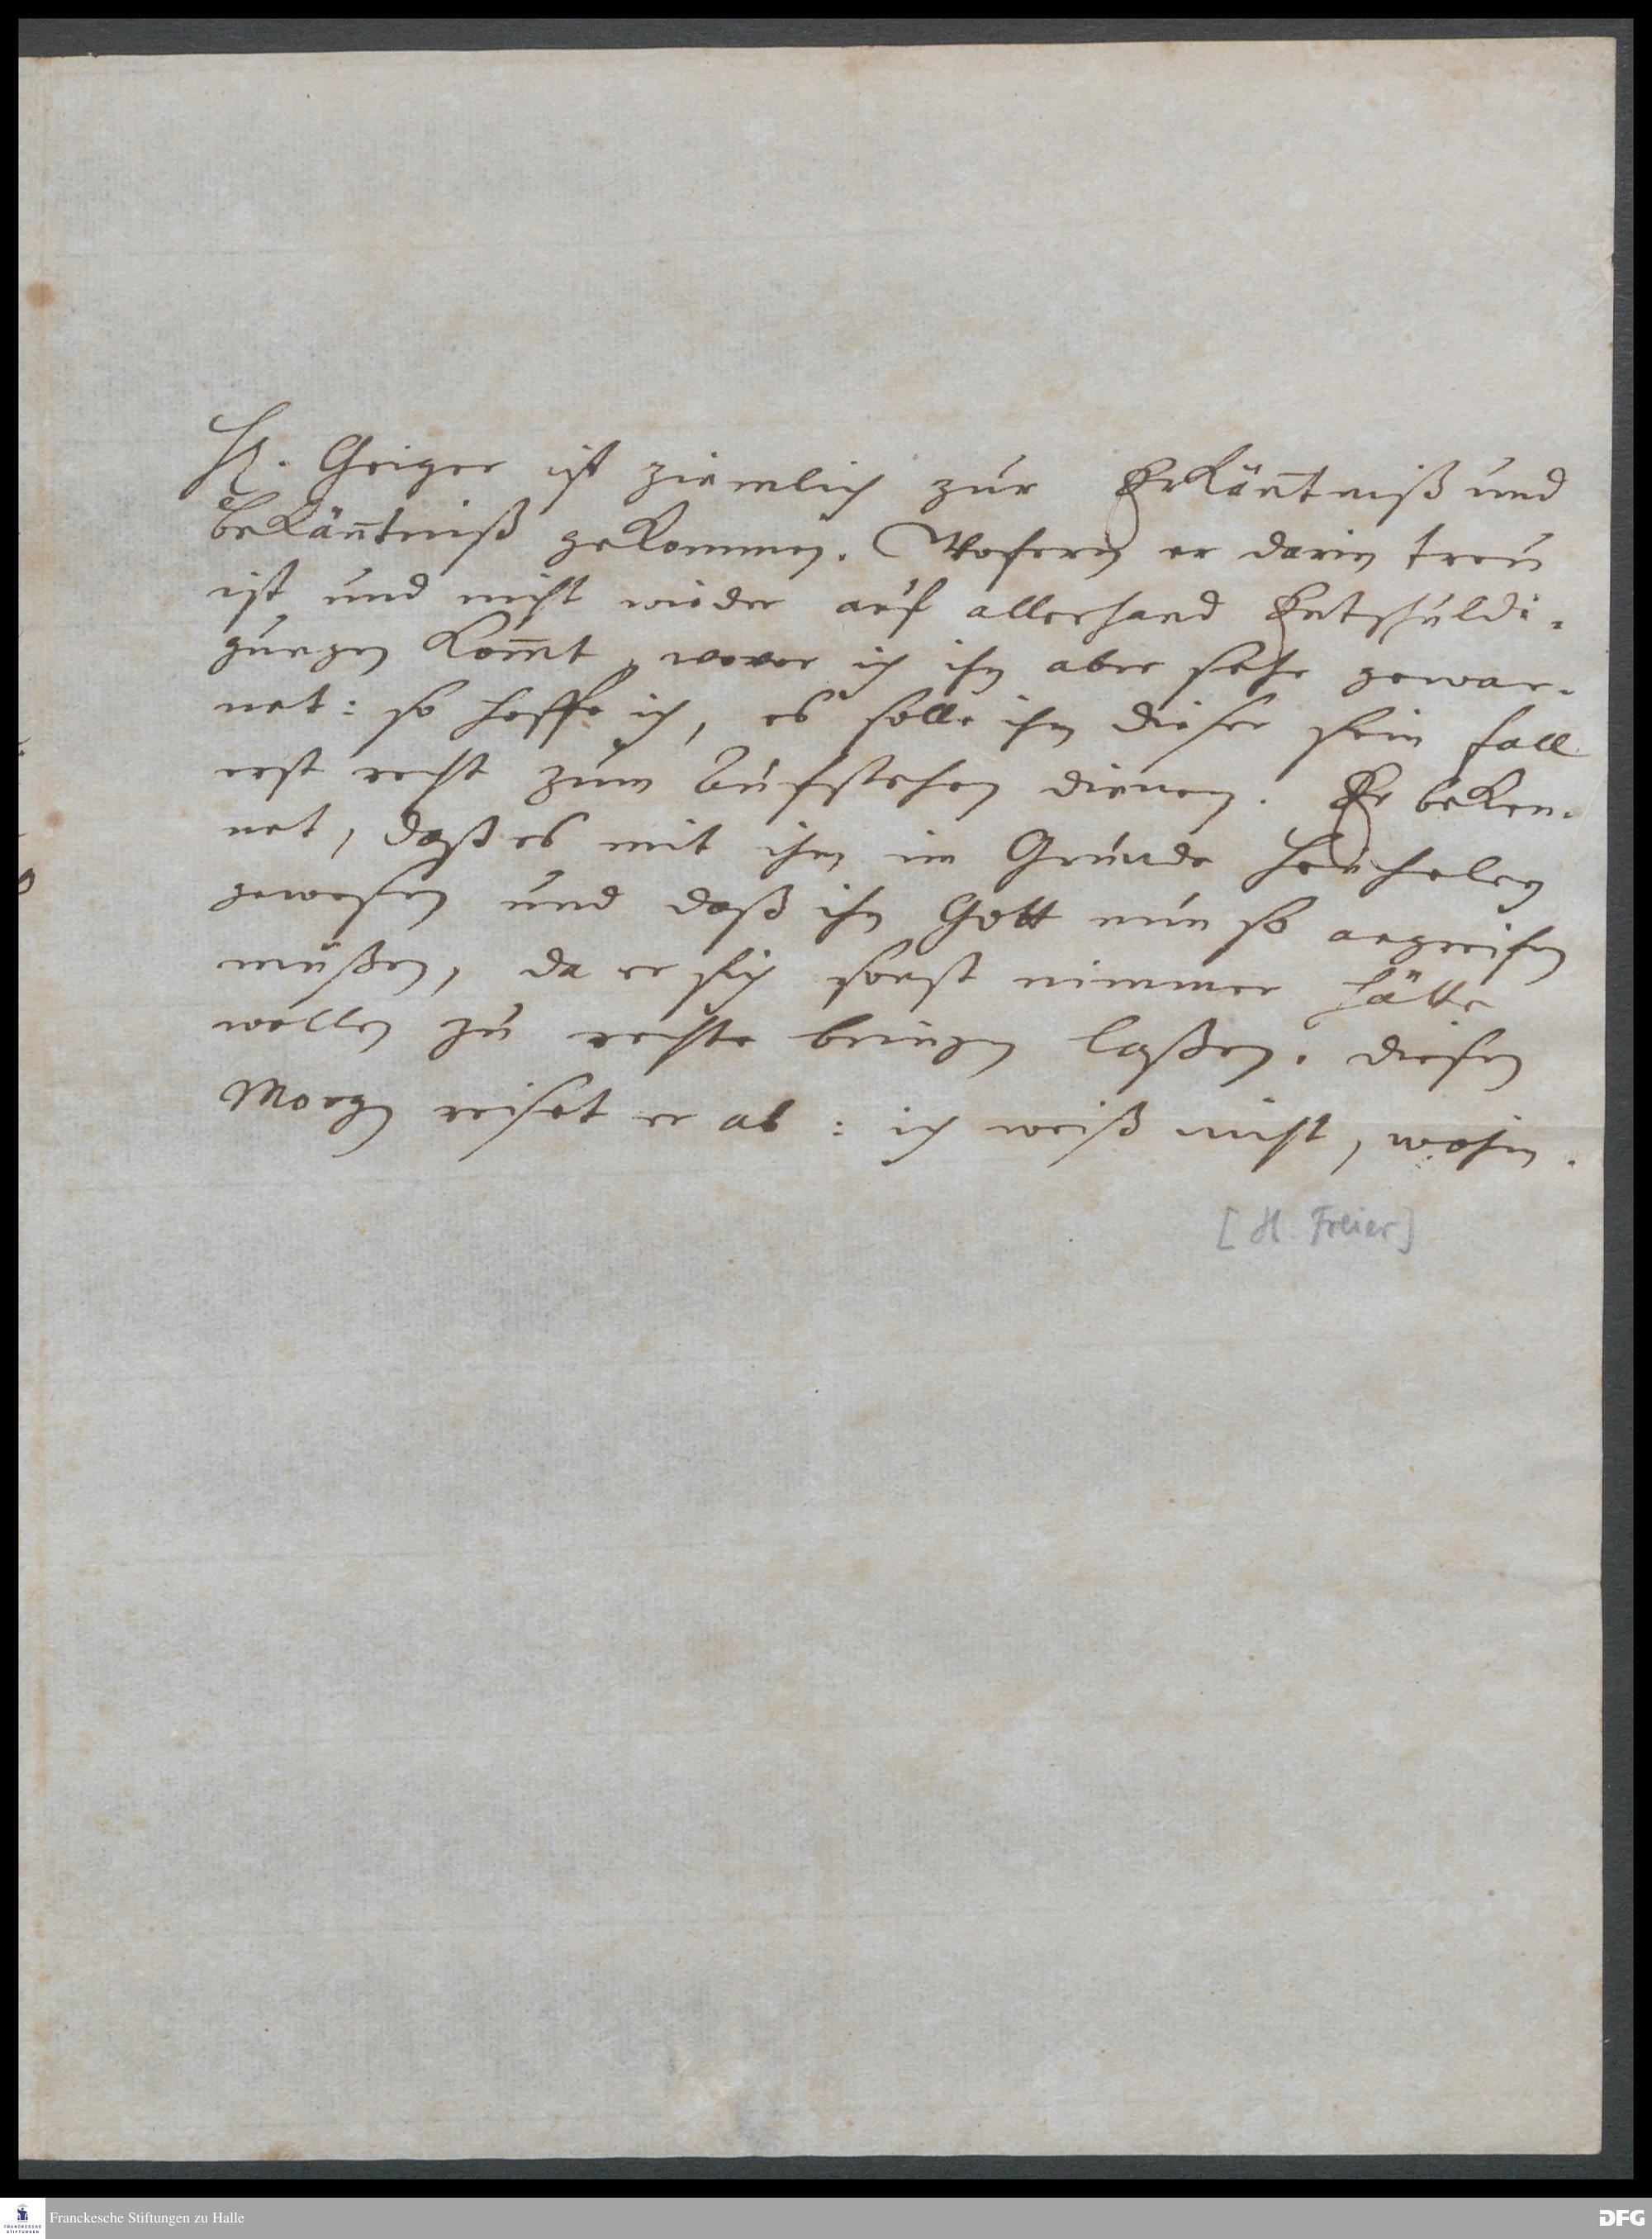 H. Geiger ist ziemlich zur Erkäntniß und
bekäñtniß gekommen. Wofern er darin treu
ist und nicht wieder auf allerhand Entschuldi¬
gungen kom̅t, wovor ich ihn aber sehr gewar¬
net: so hoffe ich, es solle ihm dieser sein fall
erst recht zum Aufstehen dienen. Er beken¬
net, daß es mit ihm im Grunde heucheley
gewesen und daß ihn Gott nun so angreifen
müßen, da er sich sonst nimmer hätte
wollen zu rechte bringen laßen. diesen
Morgen reiset er ab: ich weiß nicht, wohin.
[H. Freier]
FRANCKESCHE STIFTUNGEN
Franckesche Stiftungen zu Halle
DFG